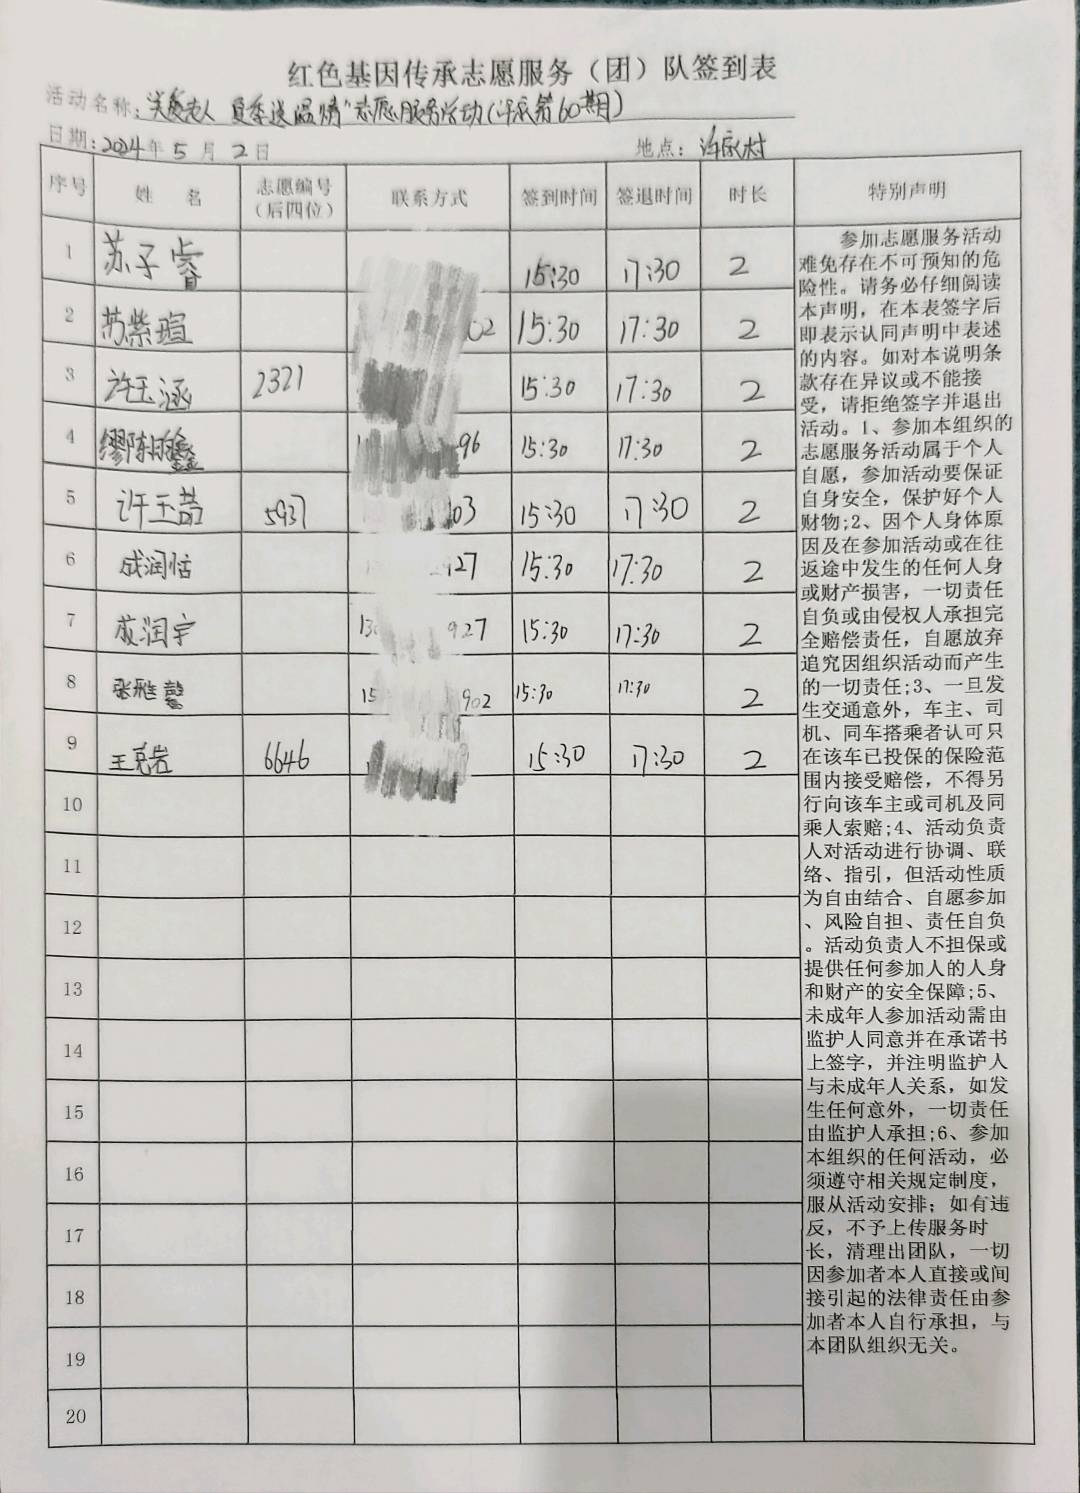 红色基因传承志愿服务（团）队签到表
活动名称：关爱老人 夏季送温情"志愿服务活动(许家第60期)
日期：2024年5月2日 地点：许家村
序号 姓 名 志愿编号（后四位） 联系方式 签到时间 签退时间 时长 特别声明
1 苏子睿 15:30 17:30 2
2 苏紫瑄 02 15:30 17:30 2
3 许玉涵 2321 15:30 17:30 2
4 缪陈 96 15:30 17:30 2
5 许玉喆 5937 03 15:30 17:30 2
6 成润恬 927 15:30 17:30 2
7 成润宇 13 927 15:30 17:30 2
8 张雅馨 15 902 15:30 17:30 2
9 王 岩 6646 15:30 17:30 2
10
11
12
13
14
15
16
17
18
19
20
参加志愿服务活动
难免存在不可预知的危
险性。请务必仔细阅读
本声明，在本表签字后
即表示认同声明中表述
的内容。如对本说明条
款存在异议或不能接
受，请拒绝签字并退出
活动。1、参加本组织的
志愿服务活动属于个人
自愿，参加活动要保证
自身安全，保护好个人
财物;2、因个人身体原
因及在参加活动或在往
返途中发生的任何人身
或财产损害，一切责任
自负或由侵权人承担完
全赔偿责任，自愿放弃
追究因组织活动而产生
的一切责任;3、一旦发
生交通意外，车主、司
机、同车搭乘者认可只
在该车已投保的保险范
围内接受赔偿，不得另
行向该车主或司机及同
乘人索赔;4、活动负责
人对活动进行协调、联
络、指引，但活动性质
为自由结合、自愿参加
、风险自担、责任自负
。活动负责人不担保或
提供任何参加人的人身
和财产的安全保障;5、
未成年人参加活动需由
监护人同意并在承诺书
上签字，并注明监护人
与未成年人关系，如发
生任何意外，一切责任
由监护人承担;6、参加
本组织的任何活动，必
须遵守相关规定制度，
服从活动安排；如有违
反，不予上传服务时
长，清理出团队，一切
因参加者本人直接或间
接引起的法律责任由参
加者本人自行承担，与
本团队组织无关。